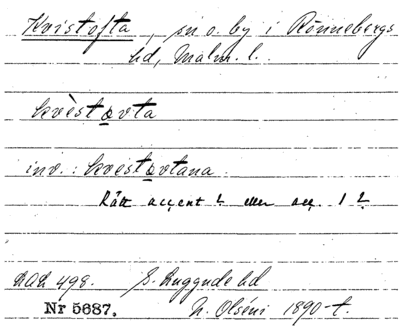 Kvistofta, sn o. by i Rönnebergs
hd, Malm. l.
kvèstɑvta
inv.: kvestɑvtana
Rätt accent? eller acc. 1?
DAL 498. S. Luggude hd
Nr 5687. N. Olséni 1890-t.